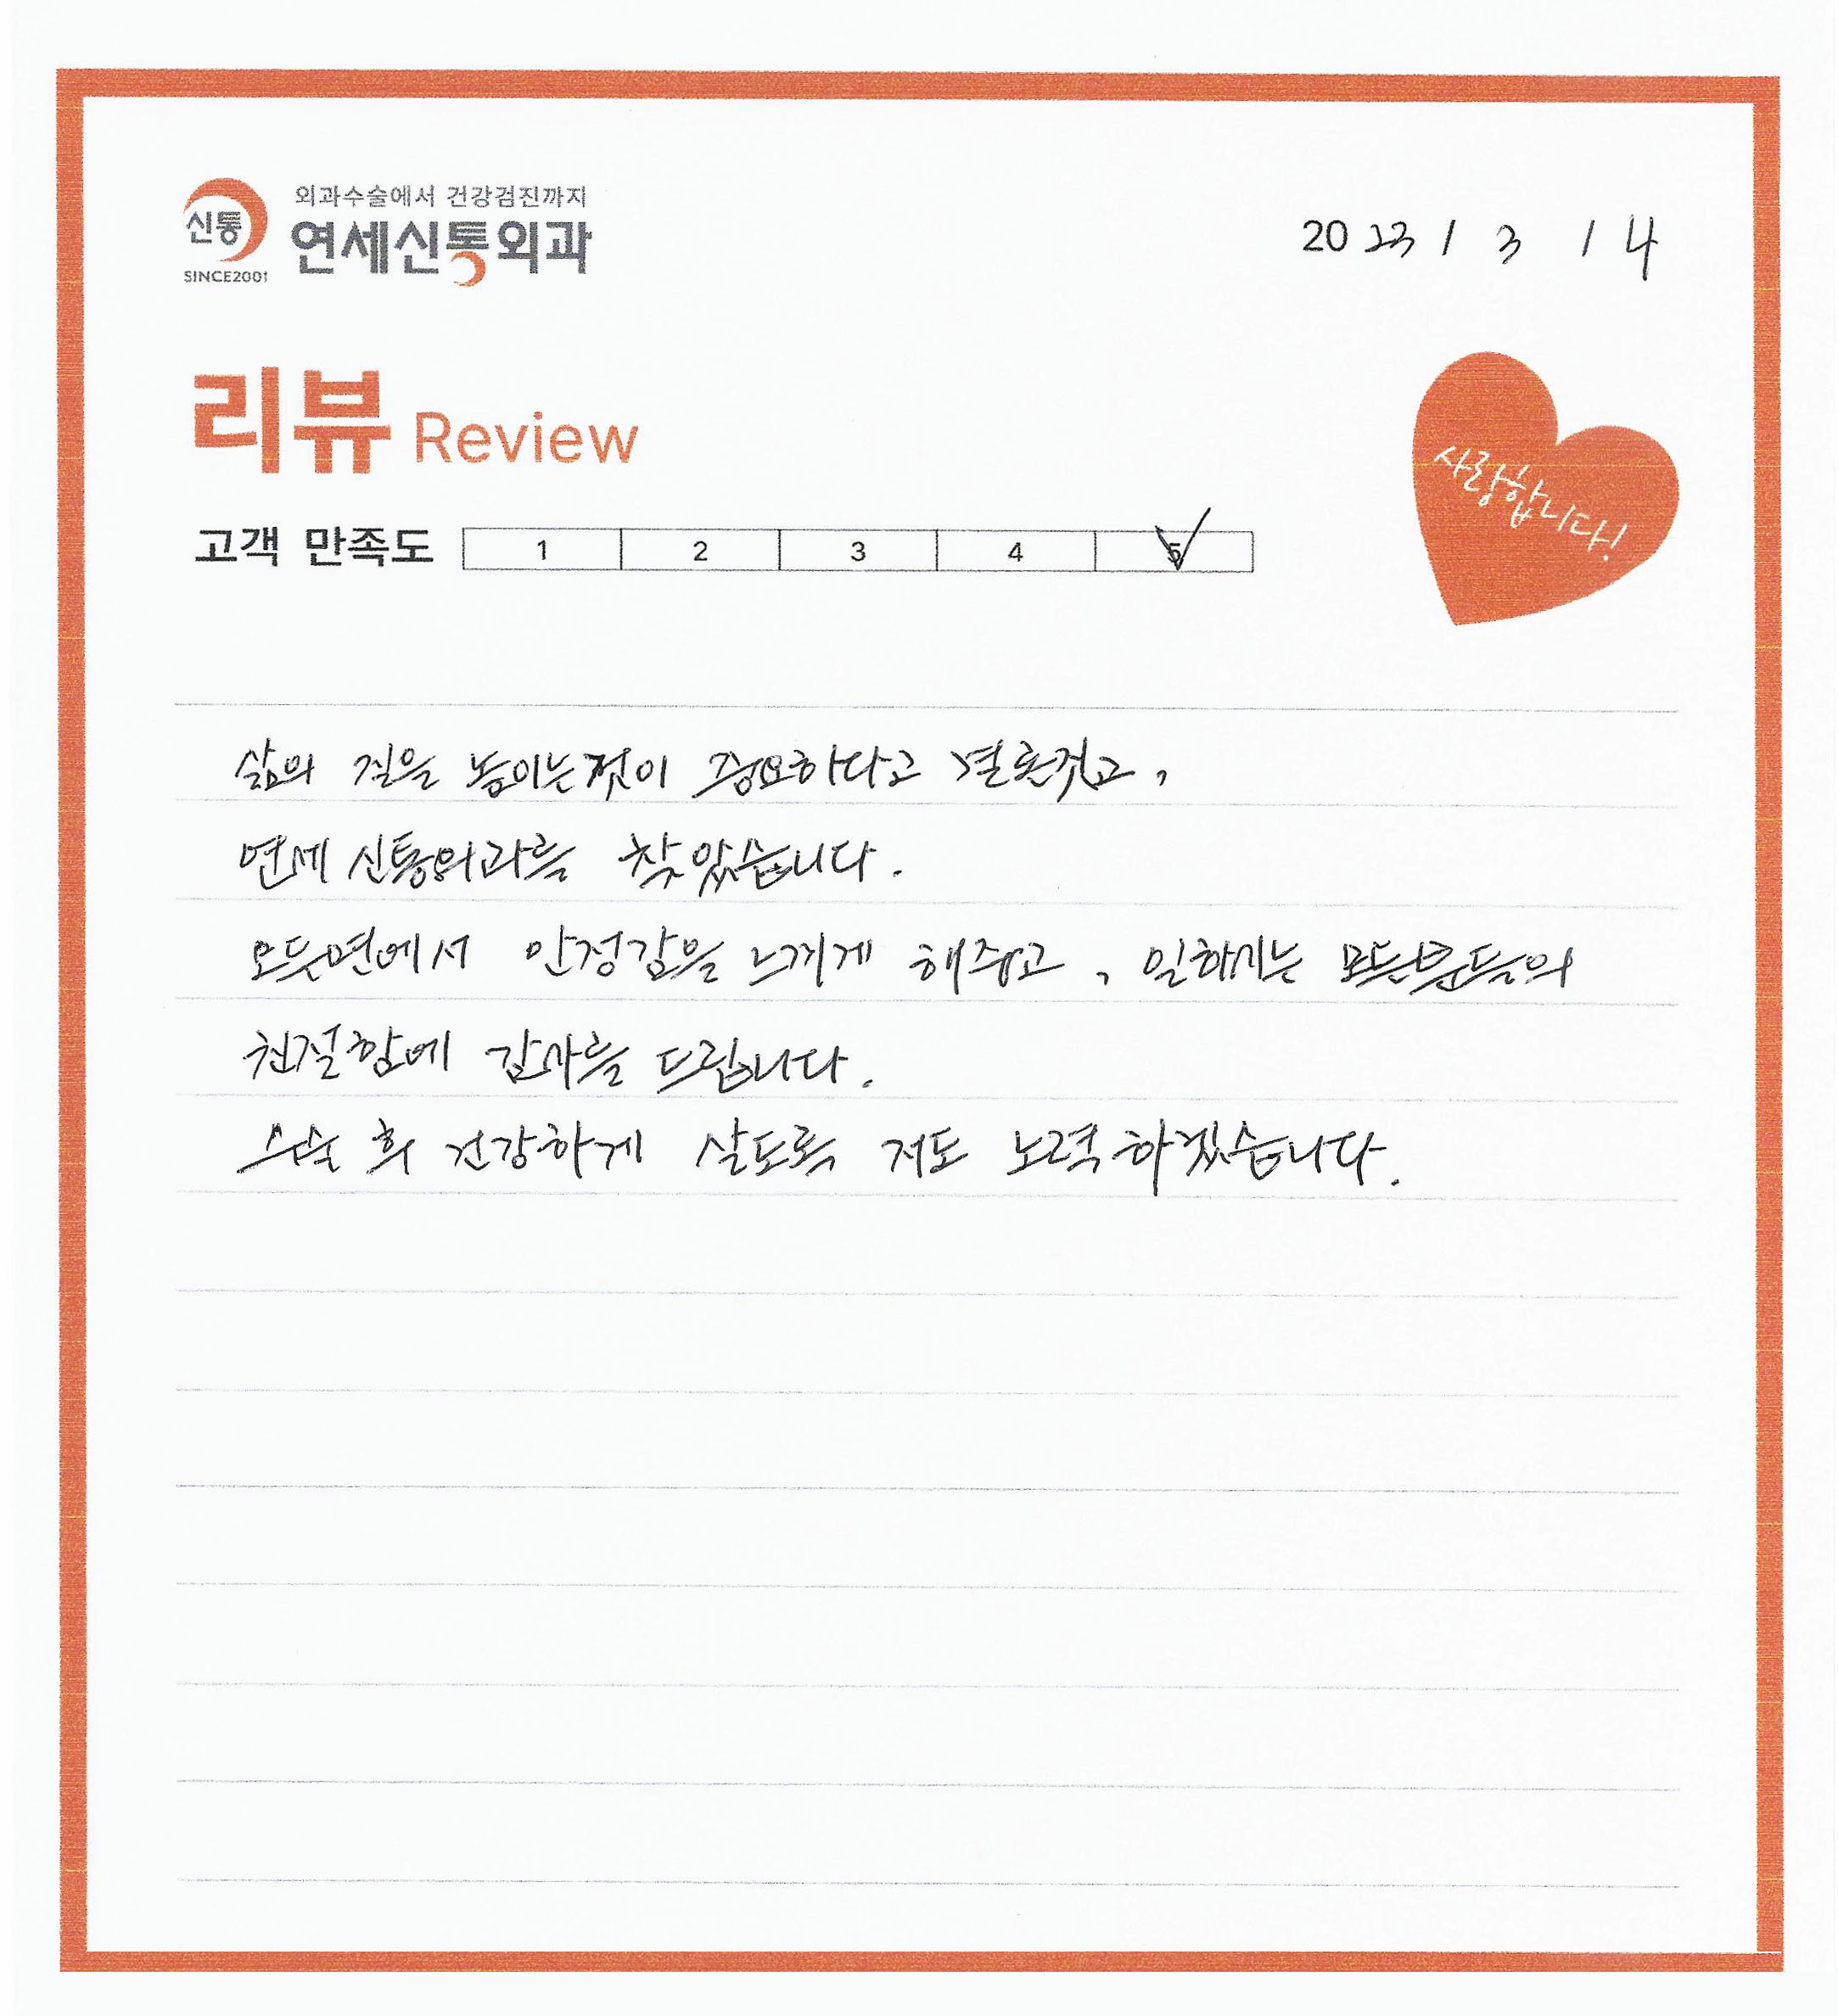 외과수술에서 건강검진까지
신통
연세신통외과
SINCE2001
2023 / 3 / 4
리뷰 Review
사랑합니다!
고객 만족도 1 2 3 4 5
삶의 질을 높이는것이 중요하다고 결론짓고,
연세 신통외과를 찾았습니다.
모든면에서 안정감을 느끼게 해주고, 일하시는 모든분들의
친절함에 감사를 드립니다.
수술 후 건강하게 살도록 저도 노력하겠습니다.